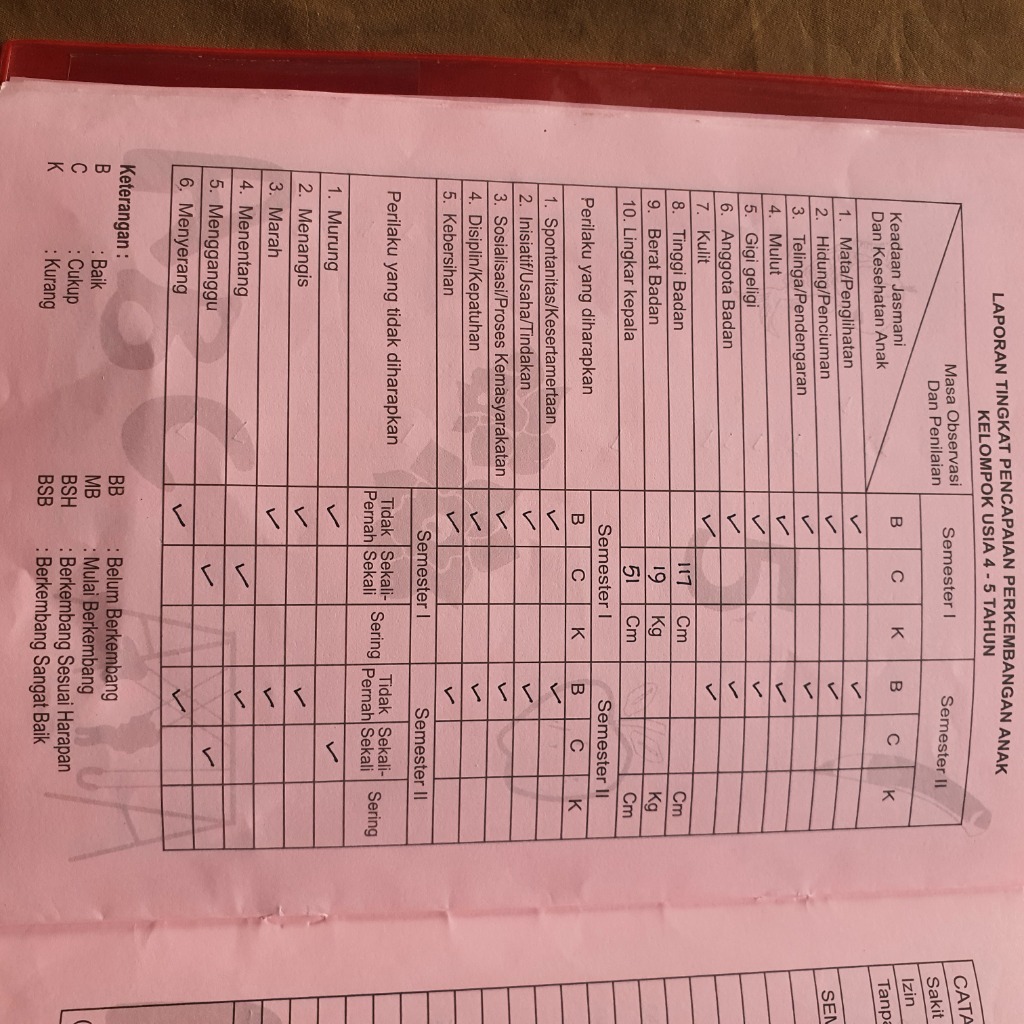 LAPORAN TINGKAT PENCAPAIAN PERKEMBANGAN ANAK
KELOMPOK USIA 4 - 5 TAHUN
Masa Observasi Dan Penilaian
Keadaan Jasmani Dan Kesehatan Anak
Semester I Semester II
B C K B C K
1. Mata/Penglihatan ✓ ✓
2. Hidung/Penciuman ✓ ✓
3. Telinga/Pendengaran ✓ ✓
4. Mulut ✓ ✓
5. Gigi geligi ✓ ✓
6. Anggota Badan ✓ ✓
7. Kulit ✓ ✓
8. Tinggi Badan 117 Cm Cm
9. Berat Badan 19 Kg Kg
10. Lingkar kepala 51 Cm Cm
Perilaku yang diharapkan Semester I Semester II
B C K B C K
1. Spontanitas/Kesertamertaan ✓ ✓
2. Inisiatif/Usaha/Tindakan ✓ ✓
3. Sosialisasi/Proses Kemasyarakatan ✓ ✓
4. Disiplin/Kepatuhan ✓ ✓
5. Kebersihan ✓ ✓
Perilaku yang tidak diharapkan Semester I Semester II
Tidak Pernah Sekali-Sekali Sering Tidak Pernah Sekali-Sekali Sering
1. Murung ✓ ✓
2. Menangis ✓ ✓
3. Marah ✓ ✓
4. Menentang ✓ ✓
5. Mengganggu ✓ ✓
6. Menyerang ✓ ✓
Keterangan :
B : Baik BB : Belum Berkembang
C : Cukup MB : Mulai Berkembang
K : Kurang BSH : Berkembang Sesuai Harapan
BSB : Berkembang Sangat Baik
CATA
Sakit
Izin
Tanpa
SEM